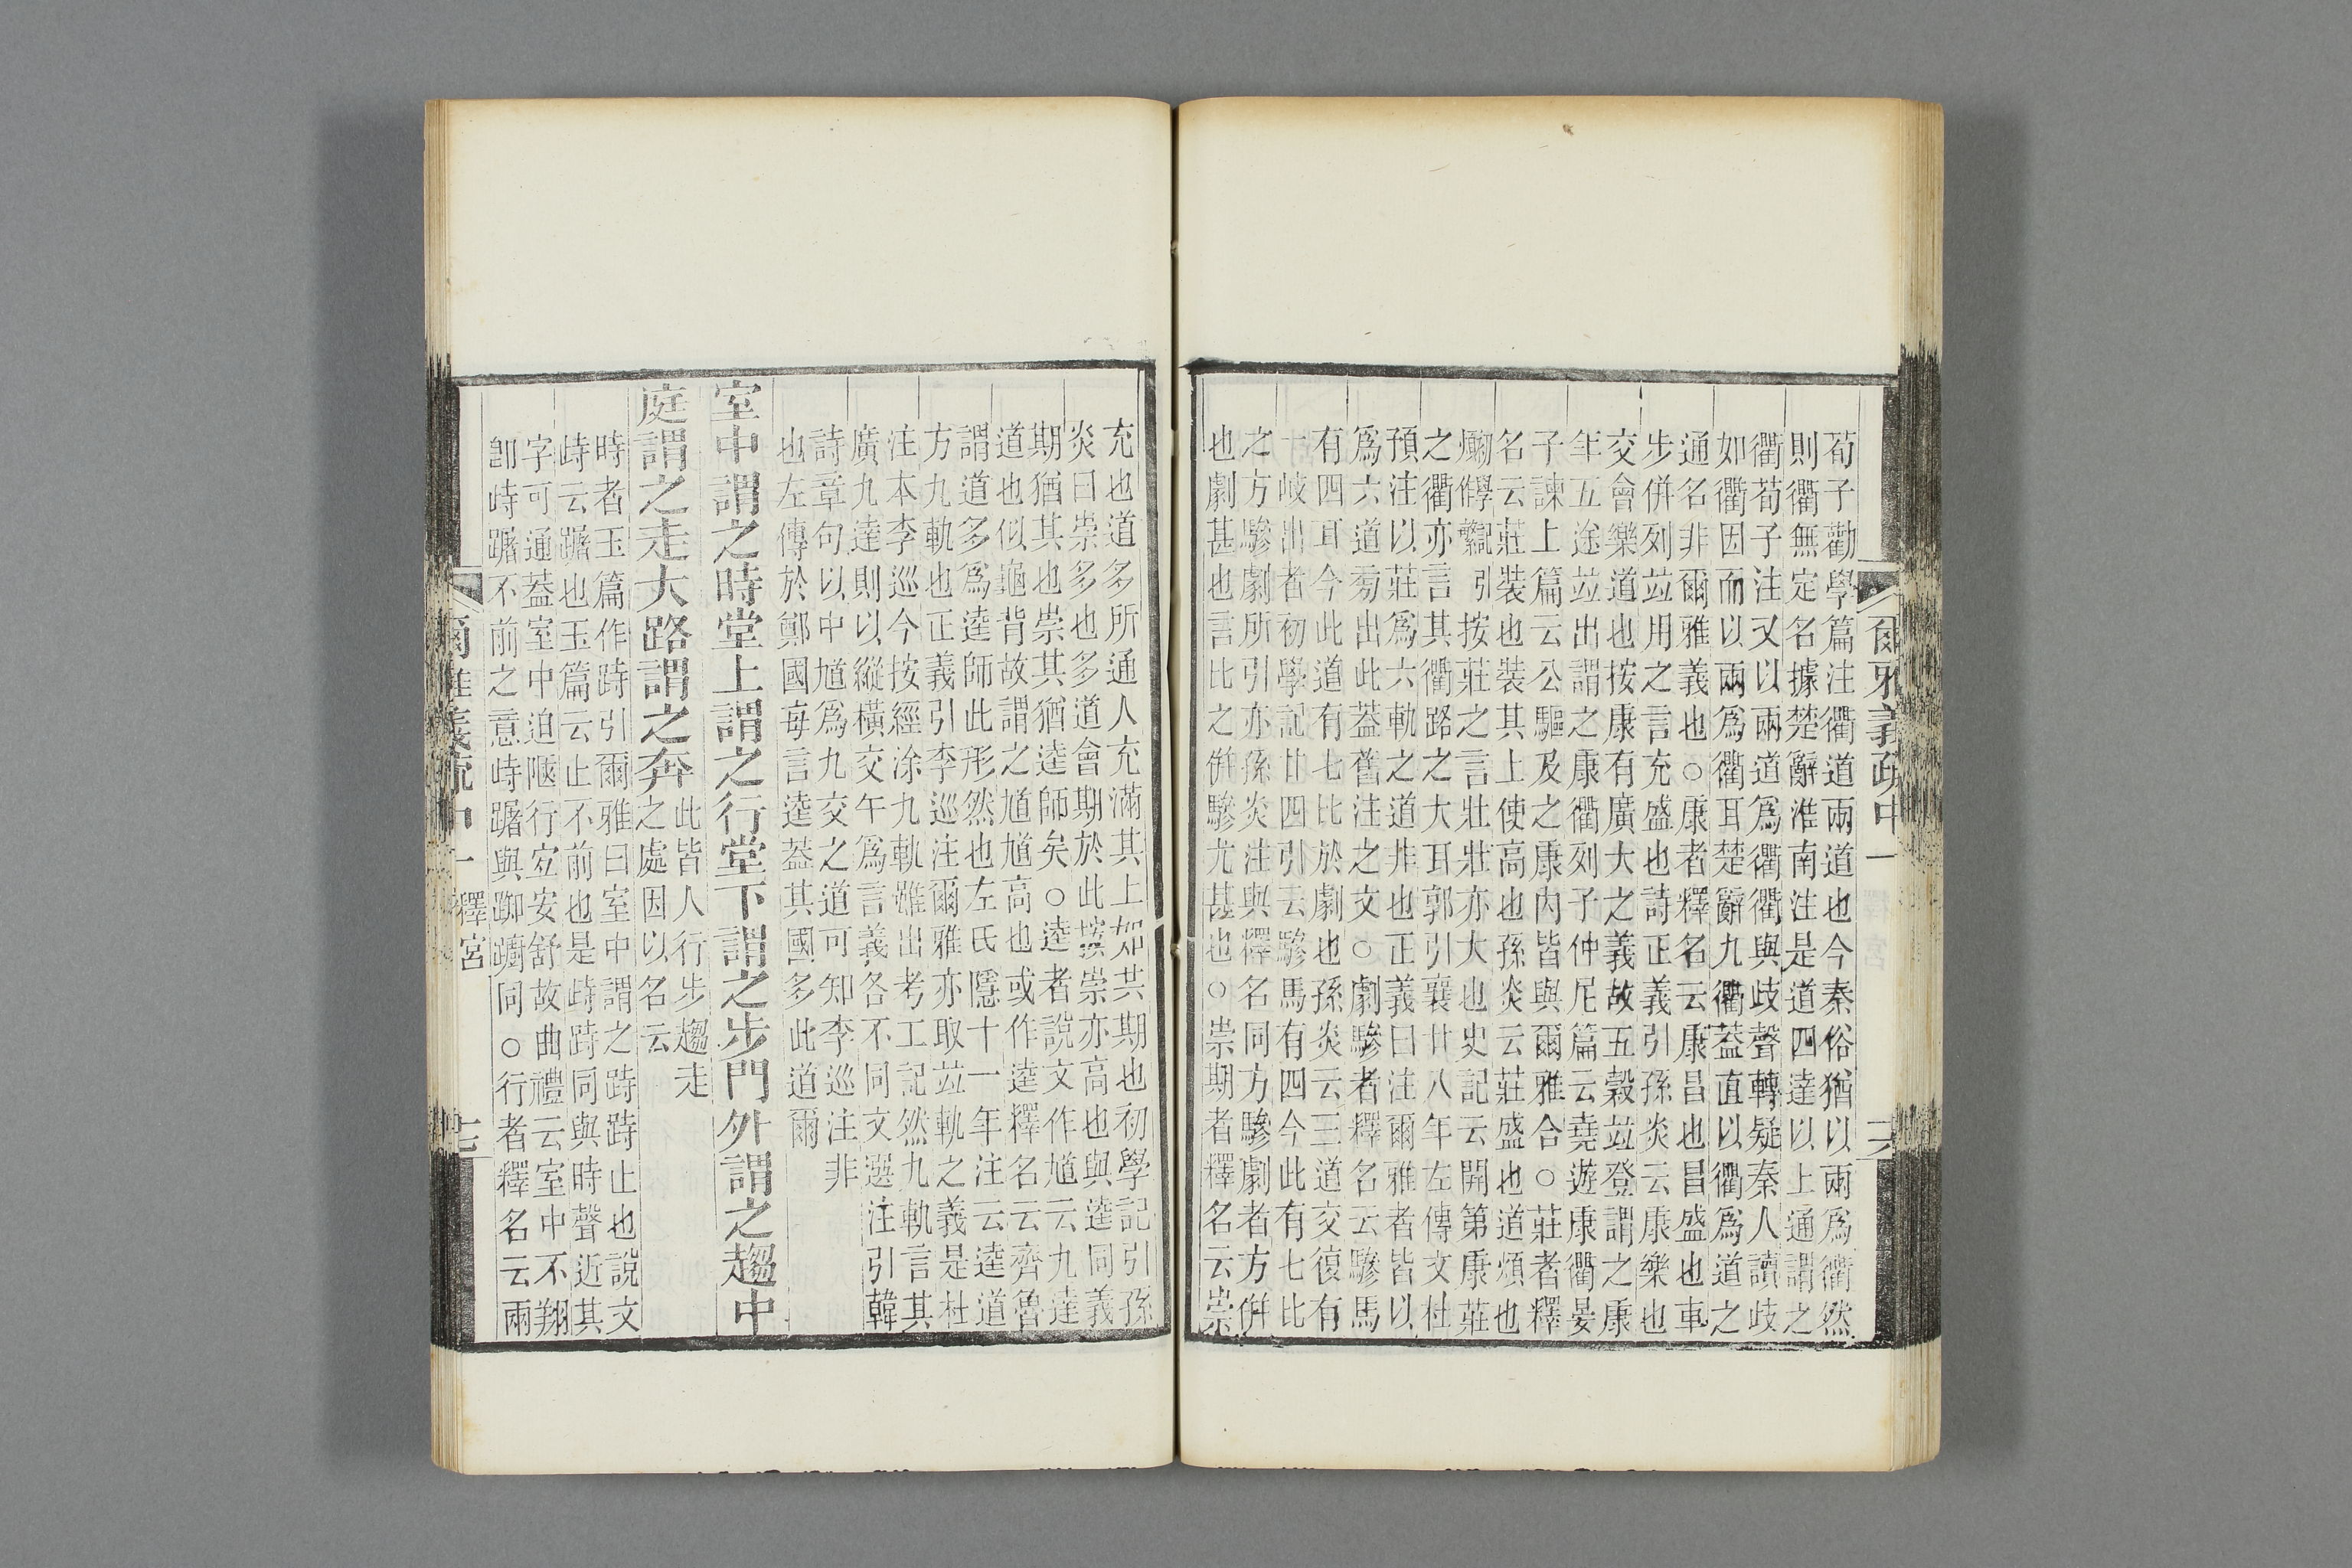 爾雅義疏中一
荀子勸學篇注衢道兩道也今秦俗猶以兩爲衢然
則衢無定名據楚辭淮南注是道四達以上通謂之
衢荀子注又以兩道爲衢衢與歧聲轉疑秦人讀歧
如衢因而以兩爲衢耳楚辭九衢葢直以衢爲道之
通名非爾雅義也○康者釋名云康昌也昌盛也車
步併列竝用之言充盛也詩正義引孫炎云康樂也
交會樂道也按康有廣大之義故五穀竝登謂之康
年五途竝出謂之康衢列子仲尼篇云堯遊康衢晏
子諫上篇云公驅及之康內皆與爾雅合○莊者釋
名云莊裝也裝其上使高也孫炎云莊盛也道煩也
引按莊之言壯壯亦大也史記云開第康莊
之衢亦言其衢路之大耳郭引襄廿八年左傳文杜
預注以莊爲六軌之道非也正義曰注爾雅者皆以
爲六道旁出此葢舊注之文○劇驂者釋名云驂馬
有四耳今此道有七比於劇也孫炎云三道交復有
一岐出者初學記廿四引云驂馬有四今此有七比
之方驂劇所引亦孫炎注與釋名同方驂劇者方併
也劇甚也言比之併驂尤甚也○崇期者釋名云崇
充也道多所通人充滿其上如共期也初學記引孫
炎曰崇多也多道會期於此按崇亦高也與逵同義
期猶其也崇其猶逵師矣○逵者說文作馗云九達
道也似龜背故謂之馗馗高也或作逵釋名云齊魯
謂道多爲逵師此形然也左氏隱十一年注云逵道
方九軌也正義引李巡注爾雅亦取竝軌之義是杜
注本李巡今按經涂九軌雖出考工記然九軌言其
廣九達則以縱橫交午爲言義各不同文選注引韓
詩章句以中馗爲九交之道可知李巡注非
也左傳於鄭國每言逵葢其國多此道爾
室中謂之時堂上謂之行堂下謂之步門外謂之趨中
庭謂之走大路謂之奔此皆人行步趨走
之處因以名云
時者玉篇作跱引爾雅曰室中謂之跱跱止也說文
峙云䠧也玉篇云止不前也是峙跱同與時聲近其
字可通葢室中迫陿行宐安舒故曲禮云室中不翔
卽峙䠧不前之意峙䠧與踟躕同○行者釋名云兩
爾雅義疏中一 釋宮